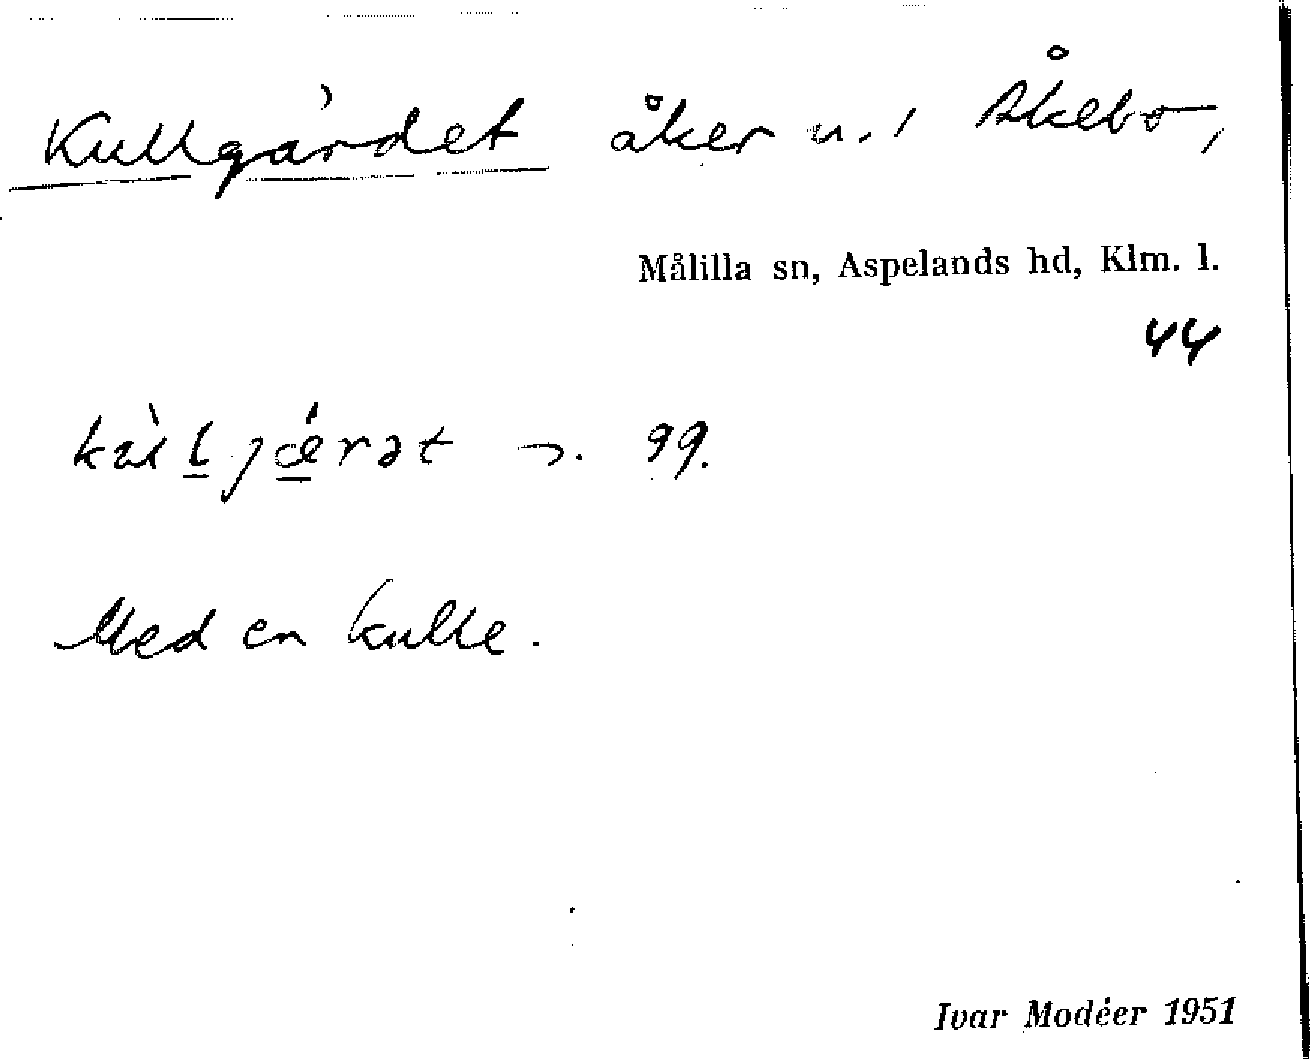 Kullgärdet åker u. 1 Åkebo,
Målilla sn, Aspelands hd, Klm. l.
44
99.
Med en kulle.
Ivar Modéer 1951